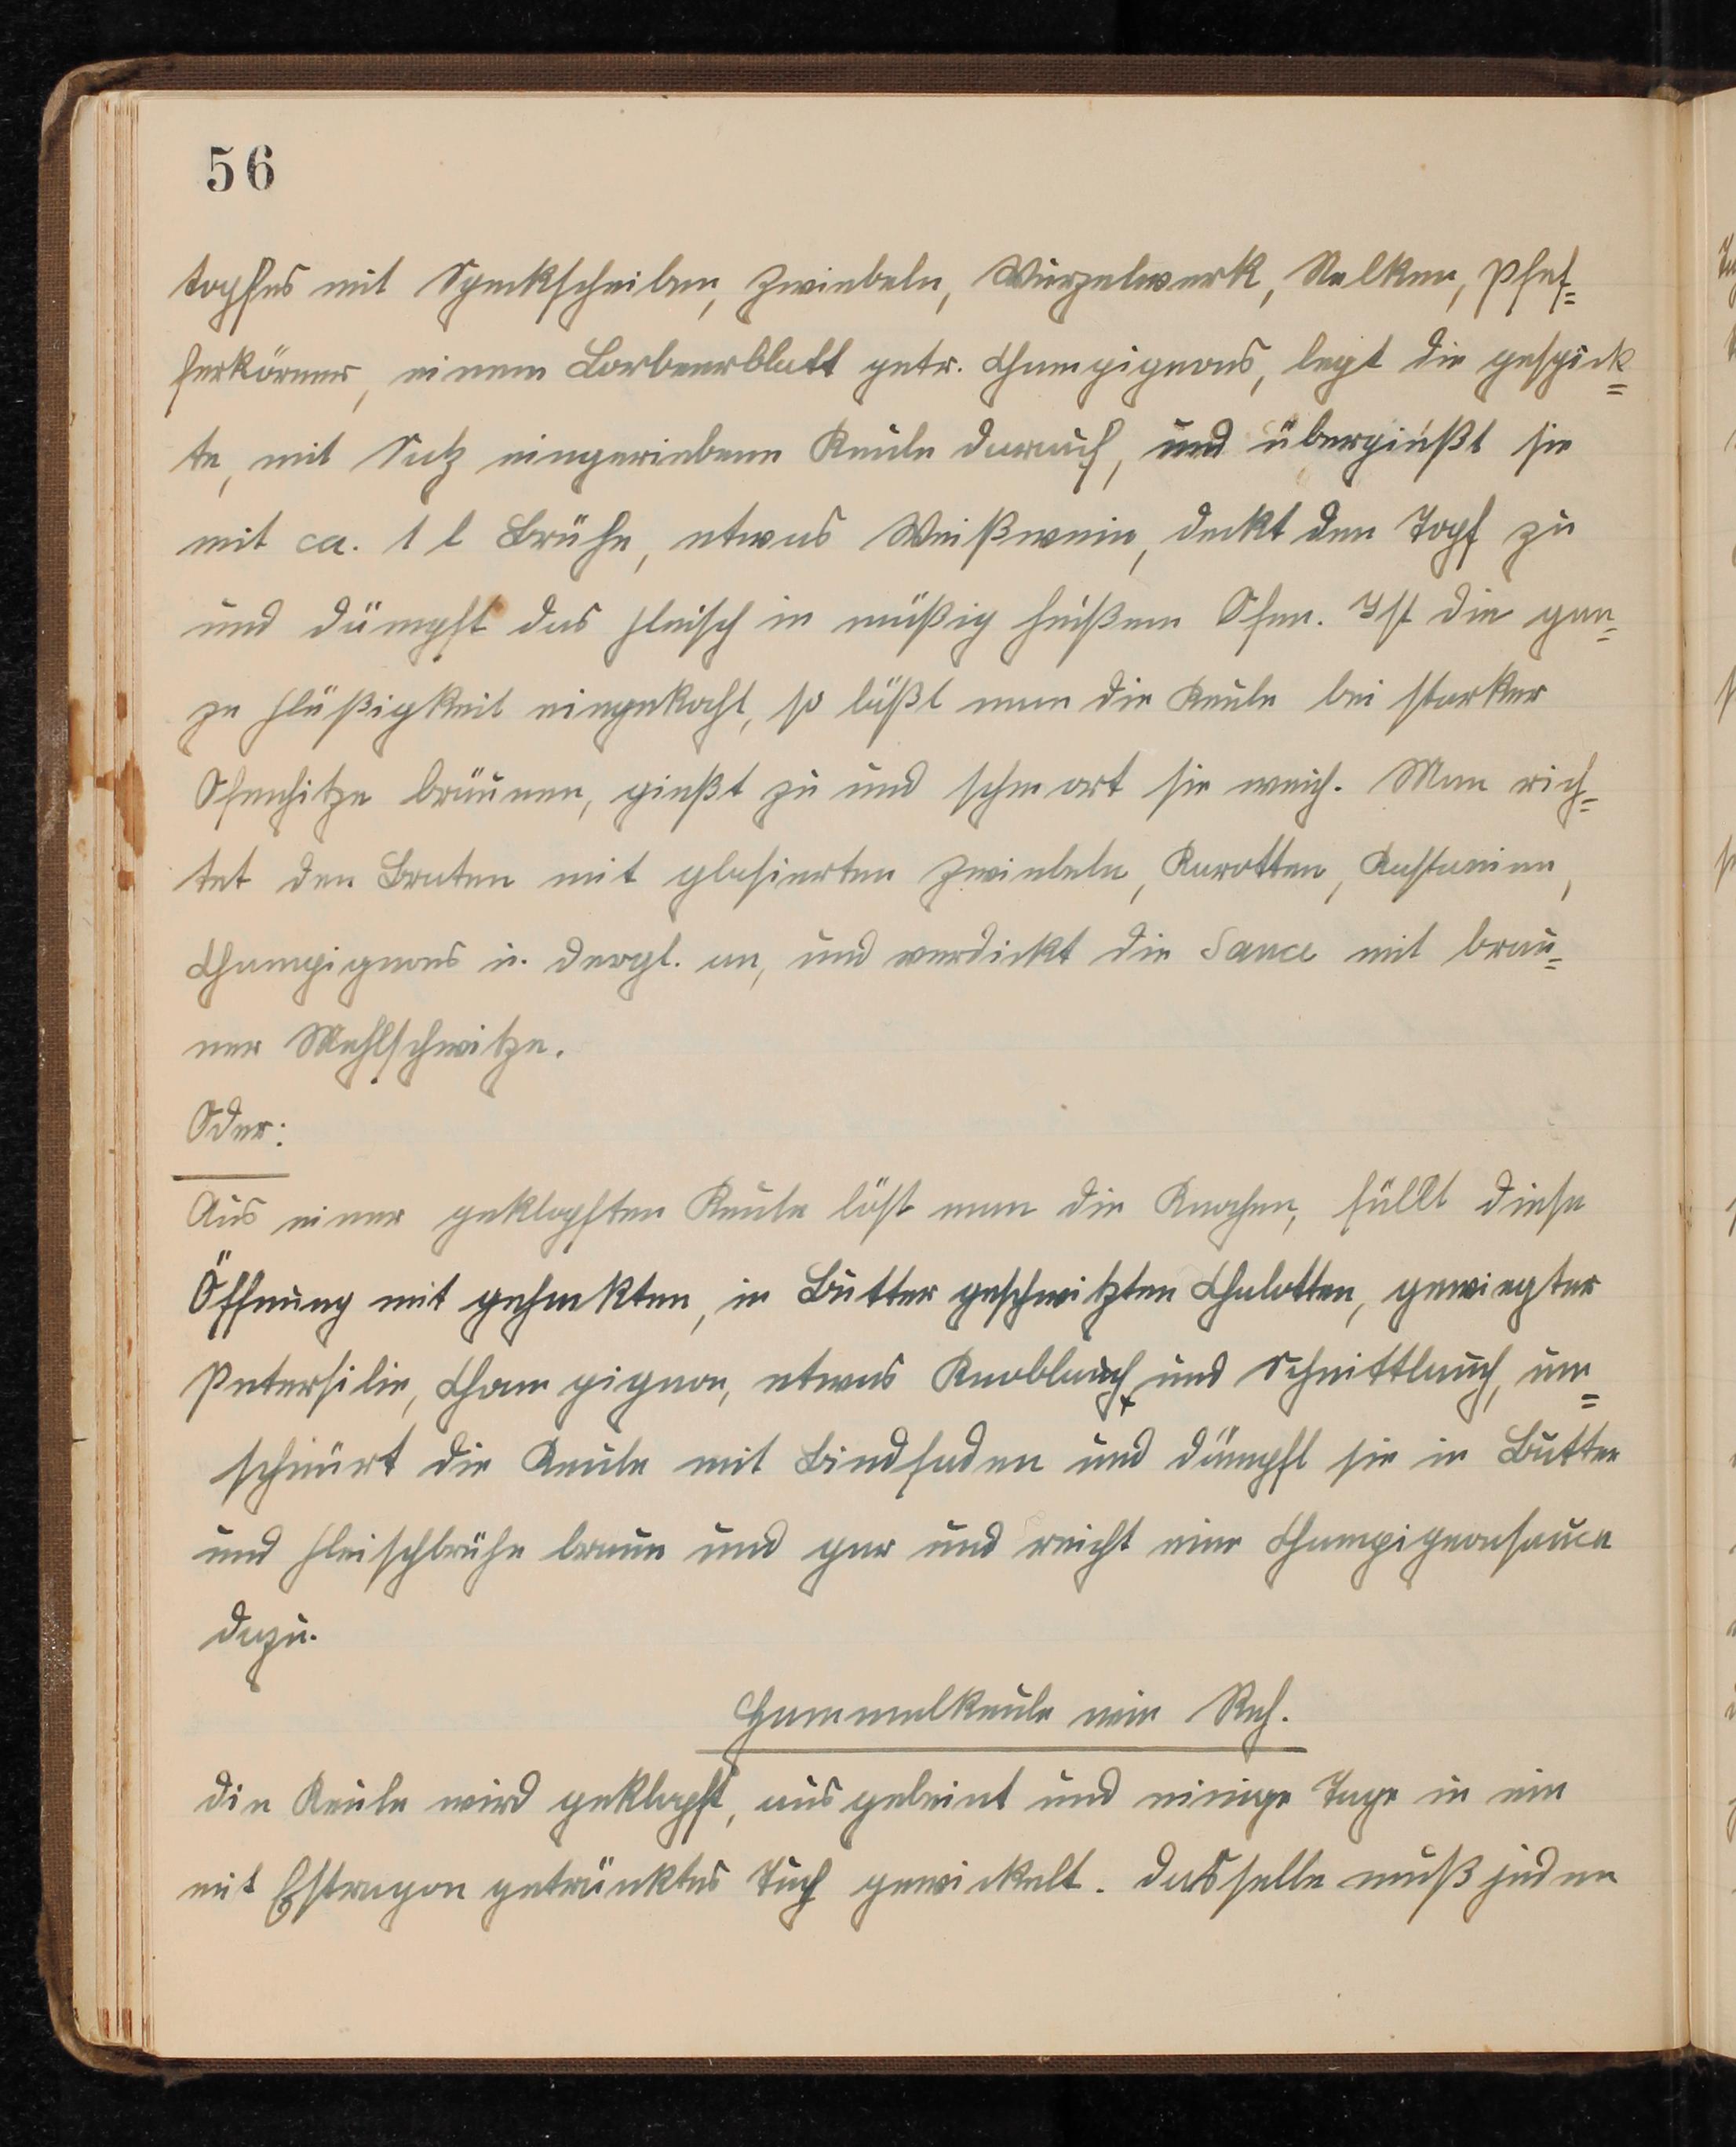 56
topfes mit Speckscheiben, Zwiebeln, Wurzelwerk, Nelken, Pfef=
ferkörner, einem Lorbeerblatt getr. Champignons, legt die gespick=
te, mit Salz eingeriebene Keule darauf, und übergießt sie
mit ca. 1 l Brühe, etwas Weißwein, deckt den Topf zu
und dämpft das Fleisch in mäßig heißem Ofen. Ist die gan=
ze Flüßigkeit eingekocht, so läßt man die Keule bei starker
Ofenhitze bräunen, gießt zu und schmort sie weich. Man rich=
tet den Braten mit glasierten Zwiebeln, Karotten, Kastanien,
Champignons u. dergl. an, und verdickt die Sauce mit brau=
ner Mehlschwitze.
Oder:
Aus einer geklopften Keule löst man die Knochen, füllt diese
Öffnung mit gehackten, in Butter geschwitzten Chalotten, gewiegter
Petersilie, Champignon, etwas Knoblauch und Schnittlauch, um=
schnürt die Keule mit Bindfaden und dämpft sie in Butter
und Fleischbrühe braun und gar und reicht eine Champignonsauce
dazu.
Hammelkeule wie Reh.
Die Keule wird geklopft, ausgebeint und einige Tage in ein
mit Estragon getränktes Tuch gewickelt. Dasselbe muß jeden